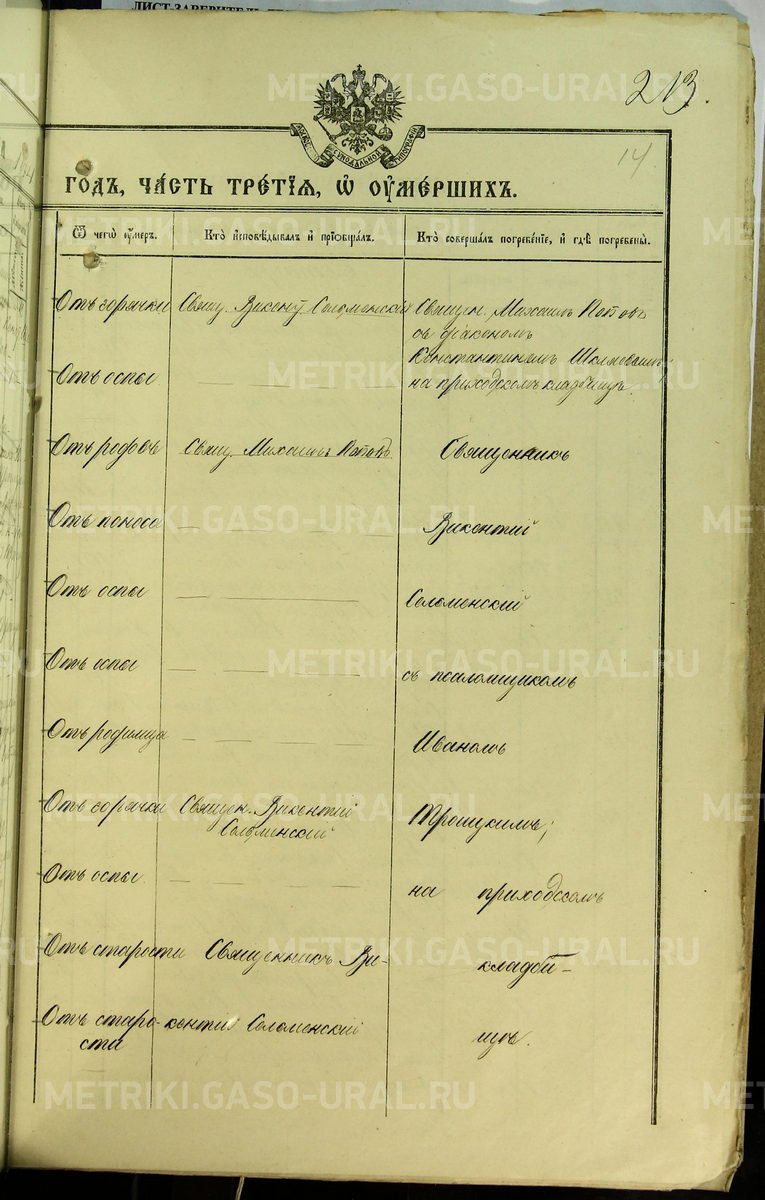 ЛИСТ-ЗАВЕРИТЕЛЬ
213.
14
СѴНОДАЛЬНОЙ ТИПОГРАФІИ
ГОДЪ, ЧА́СТЬ ТРЕ́ТІѦ, Ѡ҆ ОУ҆МЕ́РШИХЪ.
Ѿ чегѡ̀ ᲂу҆́меръ.
Кто̀ и҆сповѣ́дывалъ и҆ прїѡбща́лъ.
Кто̀ соверша́лъ погребе́нїе, и҆ гдѣ̀ погребены̀.
Отъ горячки Свящ. Викент Соломенский Священ. Михаилъ Поповъ
съ діакономъ
Константиномъ
Отъ оспы на приходскомъ кладбищѣ.
Отъ родовъ Свящ. Михаилъ Поповъ Священникъ
Отъ поноса Викентий
Отъ оспы Соломенский
Отъ оспы съ псаломщикомъ
Отъ родимца Иваномъ
Отъ горячки Священ. Викентий Троицкимъ;
Соломенский
Отъ оспы. на приходскомъ
Отъ старости Священникъ Ви- кладби-
Отъ старо- кентий Соломенский щѣ.
сти
METRIKI.GASO-URAL.RU